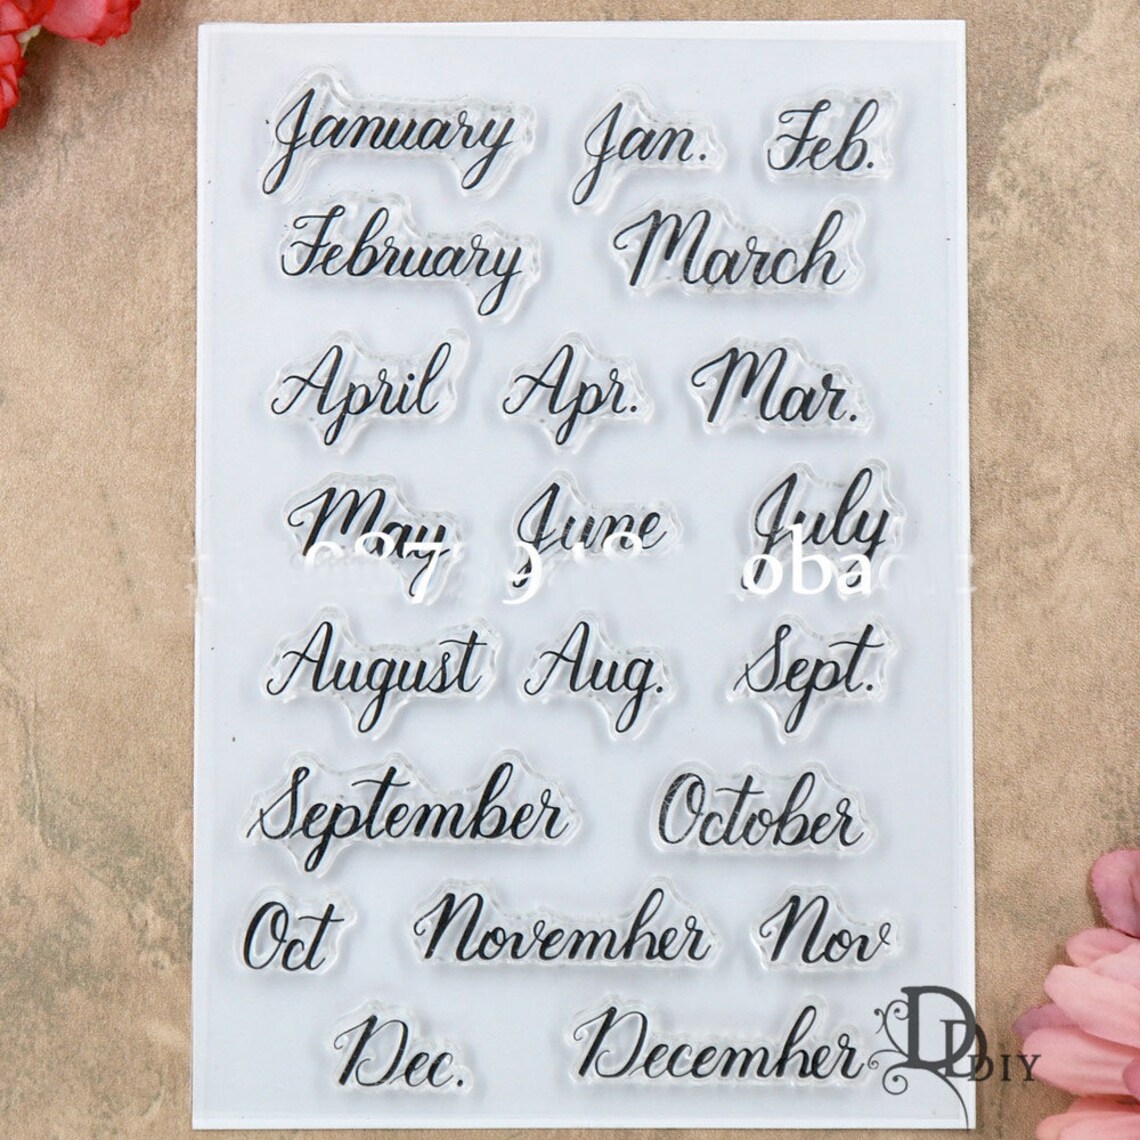 January Jan. Feb.
February March
April Apr. Mar.
May June July
August Aug. Sept.
September October
Oct Novemher Nov
Dec. Decemher
DD DIY